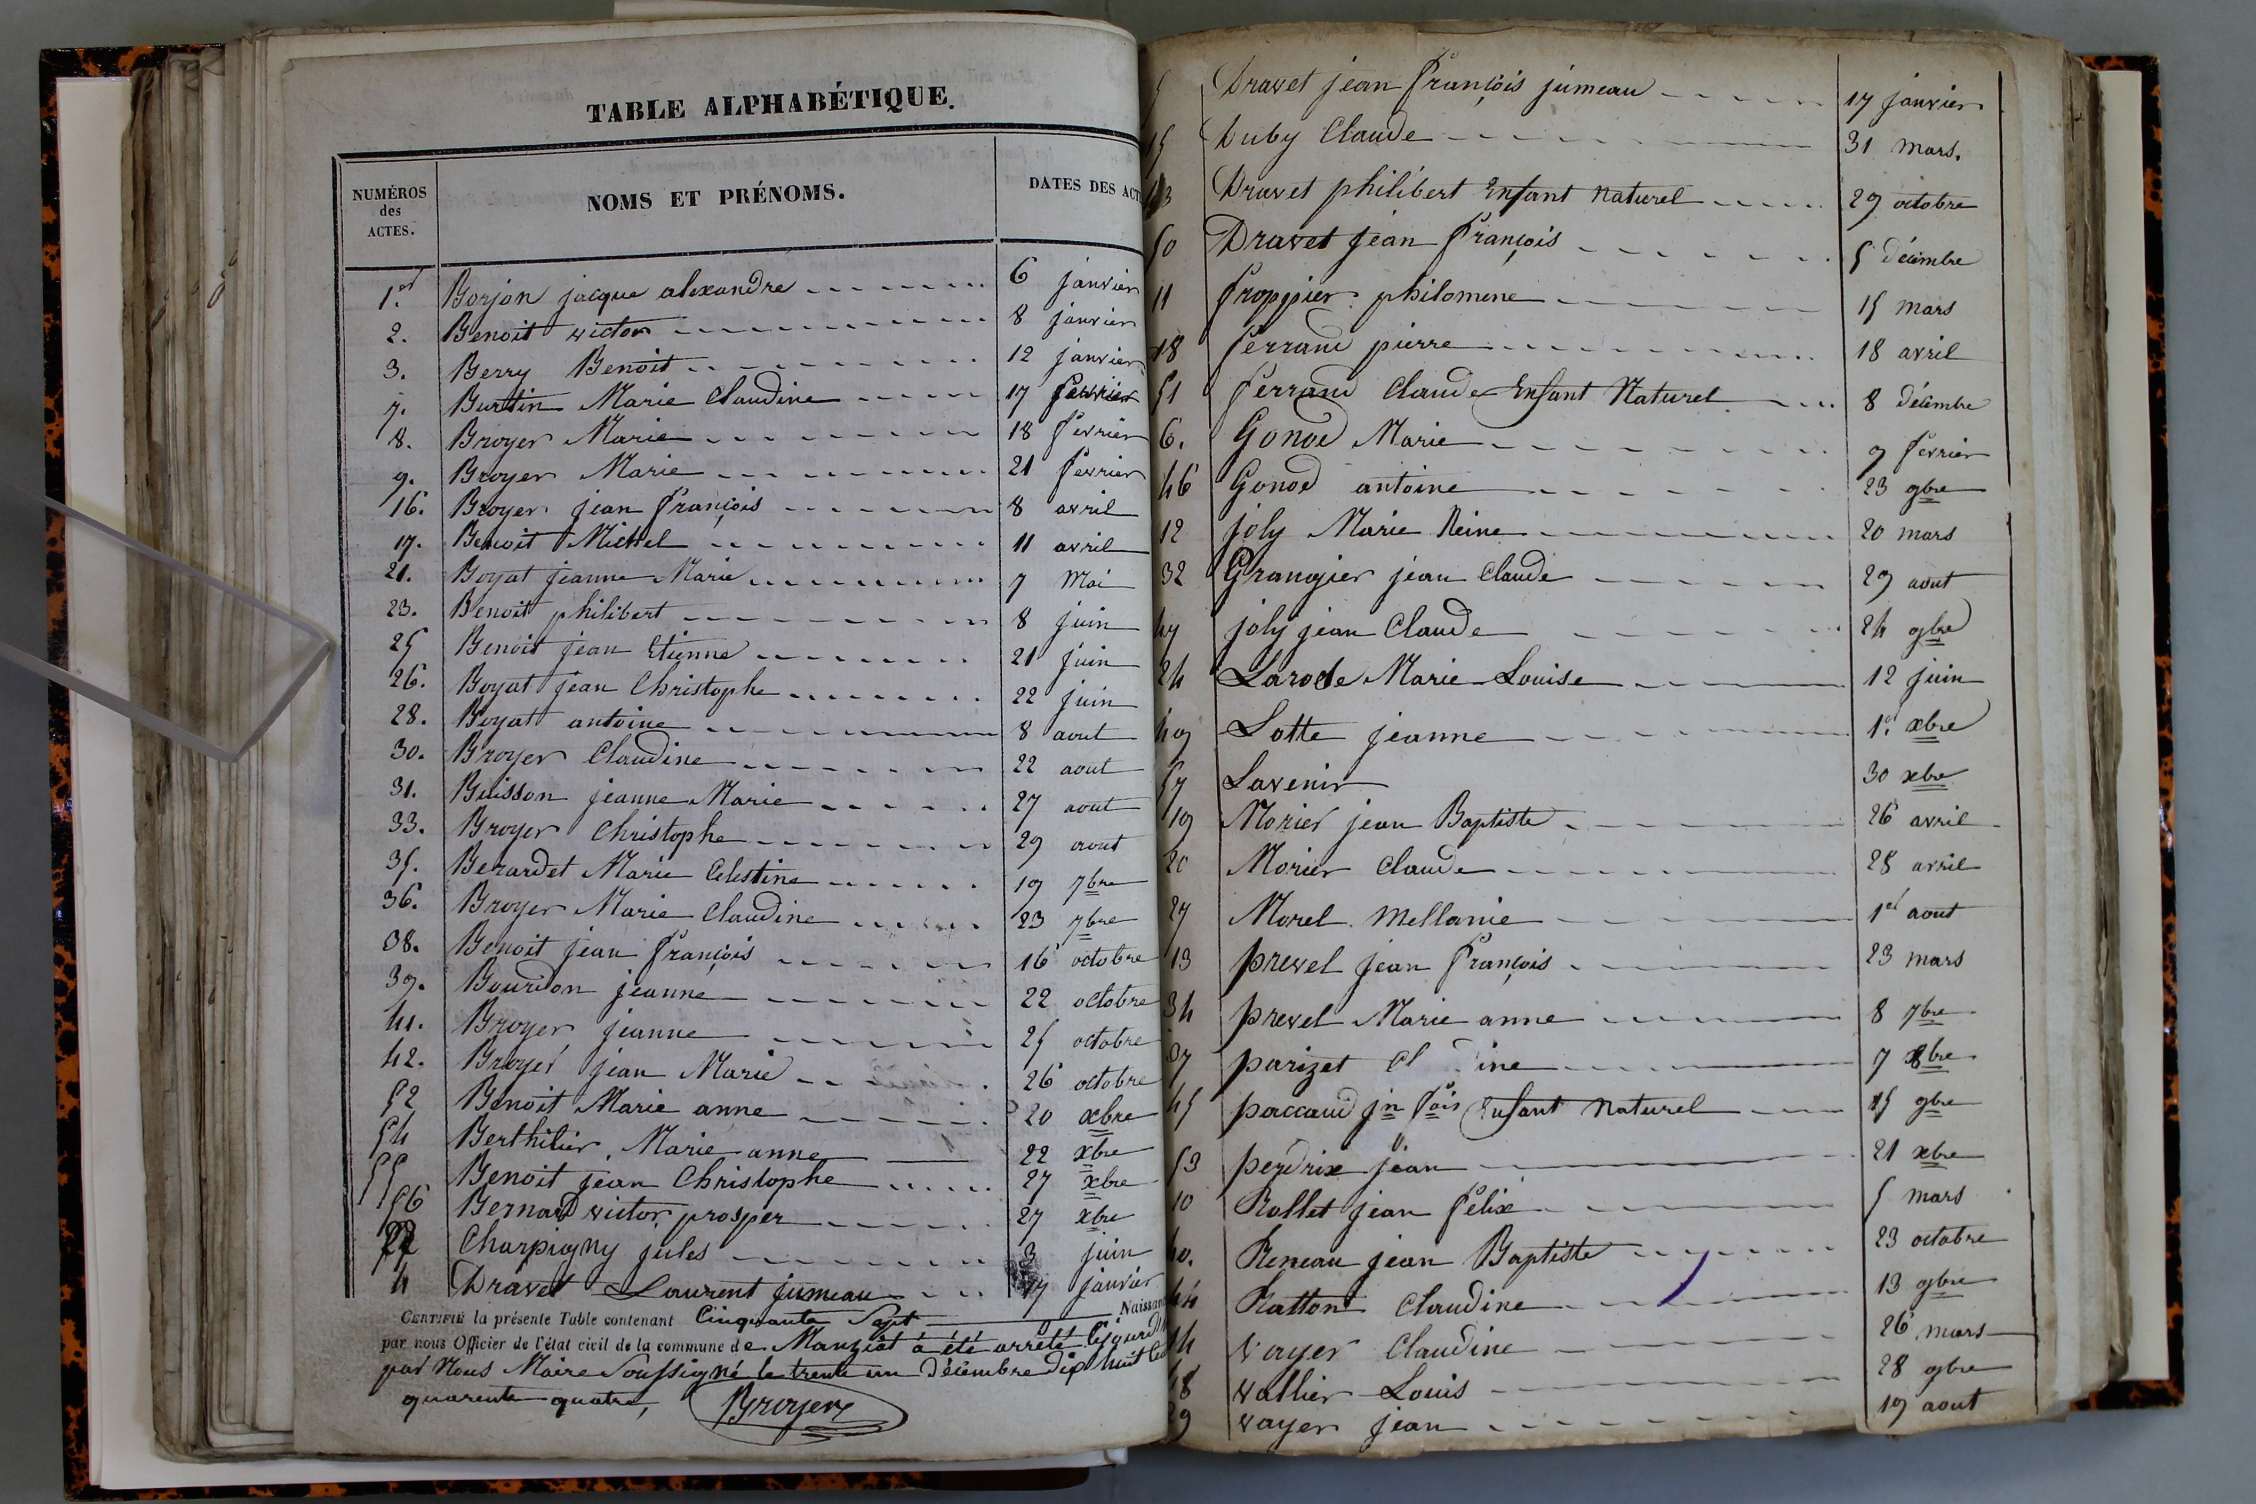 TABLE ALPHABÉTIQUE.
NUMÉROS des ACTES. NOMS ET PRÉNOMS. DATES DES ACT
1.er Borjon jacque alexandre 6 janvier
2. Benoit victor 8 janvier
3. Berry Benoit 12 janvier
7. Burtin Marie Claudine 17 fevrier
8. Broyer Marie 18 fevrier
9. Broyer Marie 21 fevrier
16. Broyer jean françois 8 avril
17. Benoit Michel 11 avril
21. Boyat jeanne Marie 7 Mai
23. Benoit philibert 8 juin
25 Benoit jean Etienne 21 juin
26. Boyat jean Christophe 22 juin
28. Boyat antoine 8 aout
30. Broyer Claudine 22 aout
31. Buisson jeanne Marie 27 aout
33. Broyer Christophe 29 aout
35. Berardet Marie Celestine 19 7bre
36. Broyer Marie Claudine 23 7bre
38. Benoit jean françois 16 octobre
39. Bourdon jeanne 22 octobre
41. Broyer jeanne 25 octobre
42. Broyer jean Marie 26 octobre
52 Benoit Marie anne 20 xbre
54 Berthilier Marie anne 22 xbre
55 Benoit jean Christophe 27 xbre
56 Bernard victor prosper 27 xbre
22 Charpigny jules 3 juin
4 Dravet Laurent jumeau 17 janvier
CERTIFIÉ la présente Table contenant Cinquante Sept Naissan
par nous Officier de l'état civil de la commune de Manziat à été arrêté
par Nous Maire Soussigné le trente un Décembre Dix huit Cent
quarente quatre, Broyer
5 Dravet jean françois jumeau 17 janvier
15 Duby Claude 31 mars.
43 Dravet philibert Enfant naturel 29 octobre
50 Dravet jean françois 5 décembre
11 froppier philomene 15 mars
18 ferrand pierre 18 avril
51 ferrand Claude Enfant Naturel 8 décembre
6. Gonod Marie 9 fevrier
46 Gonod antoine 23 9bre
12 joly Marie Reine 20 mars
32 Grangier jean Claude 29 aout
47 joly jean Claude 24 9bre
24 Laroche Marie Louise 12 juin
49 Lotte jeanne 1er xbre
57 Lavenir 30 xbre
19 Morier jean Baptiste 26 avril
20 Morier Claude 28 avril
27 Morel Mellanie 1er aout
13 prevel jean françois 23 mars
34 prevel Marie anne 8 7bre
37 parizet Cl dine 7 8bre
45 paccaud jn fois Enfant Naturel 15 9bre
53 perdrix jean 21 xbre
10 Rollet jean félix 5 mars
40. Reneau jean Baptiste 23 octobre
44 Ratton Claudine 13 9bre
14 vayer Claudine 26 mars
48 vallier Louis 28 9bre
29 vayer jean 19 aout